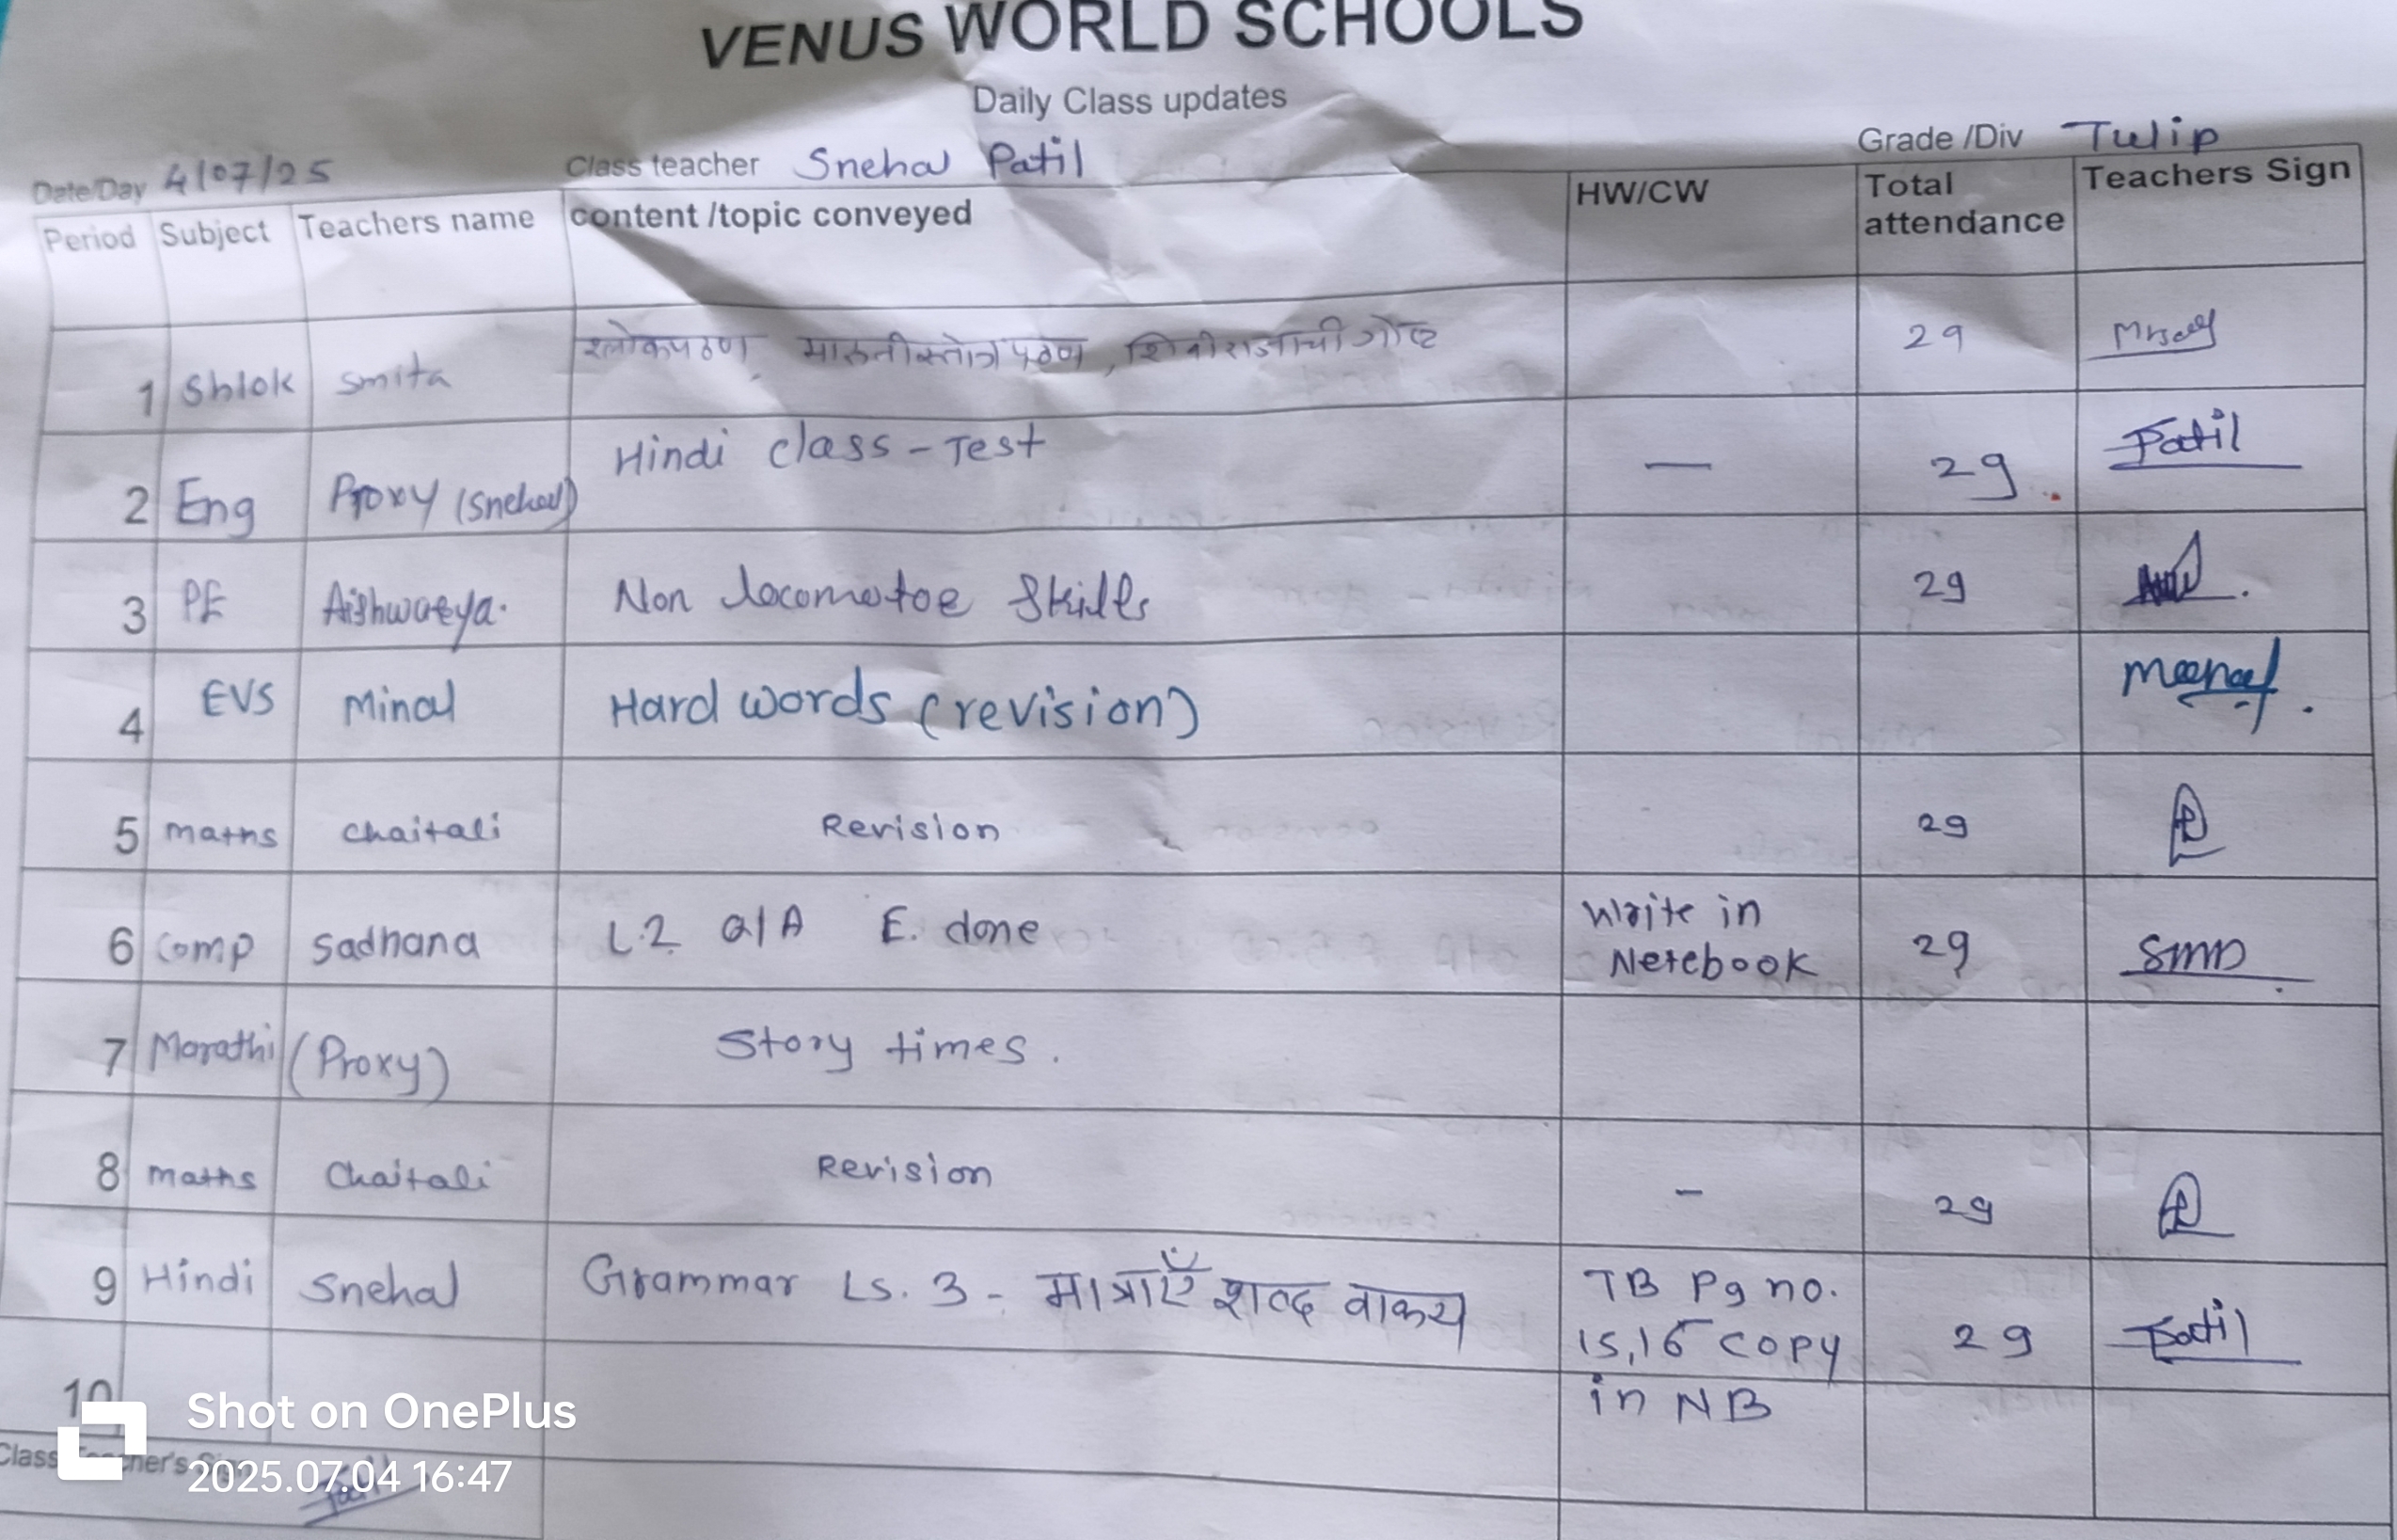 VENUS WORLD SCHOOLS
Daily Class updates
Date/Day 4/07/25 Class teacher Snehal Patil Grade /Div Tulip
Period Subject Teachers name content /topic conveyed HW/CW Total attendance Teachers Sign
1 Shlok Smita श्लोकपठण, मारुतीस्तोत्र पठण, 29
2 Eng Proxy (Snehal) Hindi class - Test — 29 Patil
3 PE Aishwarya. Non locomotor Skills 29
4 EVS Minal Hard words (revision) Meenal.
5 maths chaitali Revision 29
6 comp Sadhana L.2 Q/A E. done Write in Notebook 29 SMD
7 Marathi (Proxy) Story times.
8 maths Chaitali Revision - 29
9 Hindi Snehal Grammar Ls. 3 - मात्राएँ शब्द वाक्य TB Pg no. 15,16 copy in NB 29 Patil
10
Class Teacher's Sign Patil
Shot on OnePlus
2025.07.04 16:47